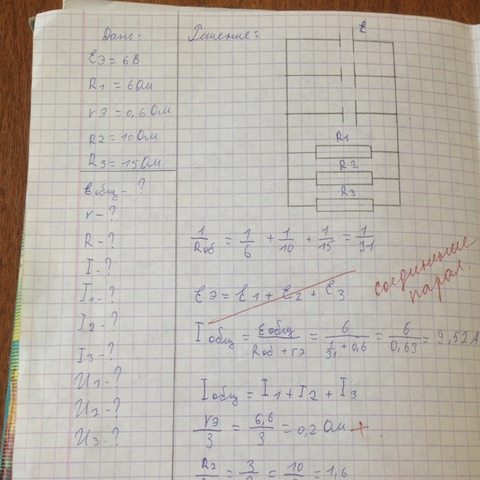 Дано:
Eэ = 6В
R1 = 6Ом
rэ = 0,6Ом
R2 = 10Ом
R3 = 15Ом
Eобщ - ?
r - ?
R - ?
I - ?
I1 - ?
I2 - ?
I3 - ?
U1 - ?
U2 - ?
U3 - ?
Решение:
E
R1
R2
R3
1/Rоб = 1/6 + 1/10 + 1/15 = 1/31
соединение
парал
Eэ = E1 + E2 + E3
Iобщ = Eобщ/(Rоб + rэ) = 6/(1/31 + 0,6) = 6/0,63 = 9,52А
Iобщ = I1 + I2 + I3
rэ/3 = 6,6/3 = 0,2Ом +
= 3 = 10 = 1,6